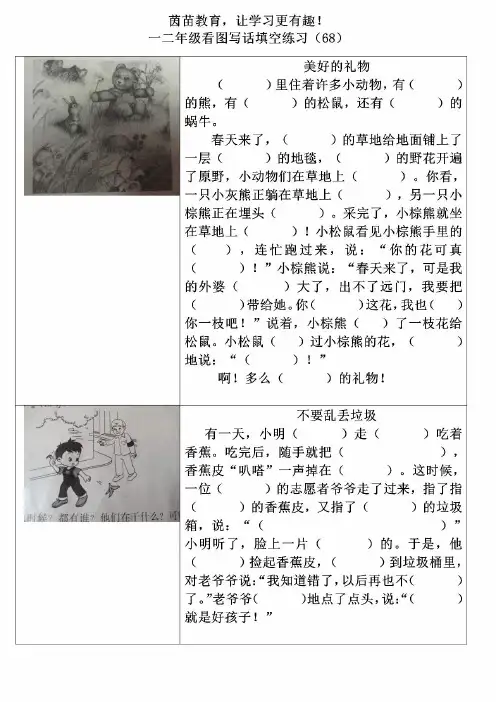 茵苗教育，让学习更有趣！
一二年级看图写话填空练习（68）
美好的礼物
（　　　）里住着许多小动物，有（　　　）
的熊，有（　　　）的松鼠，还有（　　　）的
蜗牛。
春天来了，（　　　）的草地给地面铺上了
一层（　　　）的地毯，（　　　）的野花开遍
了原野，小动物们在草地上（　　　）。你看，
一只小灰熊正躺在草地上（　　　），另一只小
棕熊正在埋头（　　　）。采完了，小棕熊就坐
在草地上（　　　）！小松鼠看见小棕熊手里的
（　　），连忙跑过来，说：“你的花可真
（　　　）！”小棕熊说：“春天来了，可是我
的外婆（　　　）大了，出不了远门，我要把
（　　　）带给她。你（　　　）这花，我也（　　）
你一枝吧！”说着，小棕熊（　　）了一枝花给
松鼠。小松鼠（　　）过小棕熊的花，（　　　）
地说：“（　　　）！”
啊！多么（　　　）的礼物！
不要乱丢垃圾
有一天，小明（　　　）走（　　　）吃着
香蕉。吃完后，随手就把（　　　　　　），
香蕉皮“叭嗒”一声掉在（　　　）。这时候，
一位（　　　）的志愿者爷爷走了过来，指了指
（　　　）的香蕉皮，又指了（　　　）的垃圾
箱，说：“（　　　　　　　　　　　）”
小明听了，脸上一片（　　　）的。于是，他
（　　　）捡起香蕉皮，（　　　）到垃圾桶里，
对老爷爷说：“我知道错了，以后再也不（　　　）
了。”老爷爷（　　　）地点了点头，说：“（　　　）
就是好孩子！”
时候？都有谁？他们在干什么？可